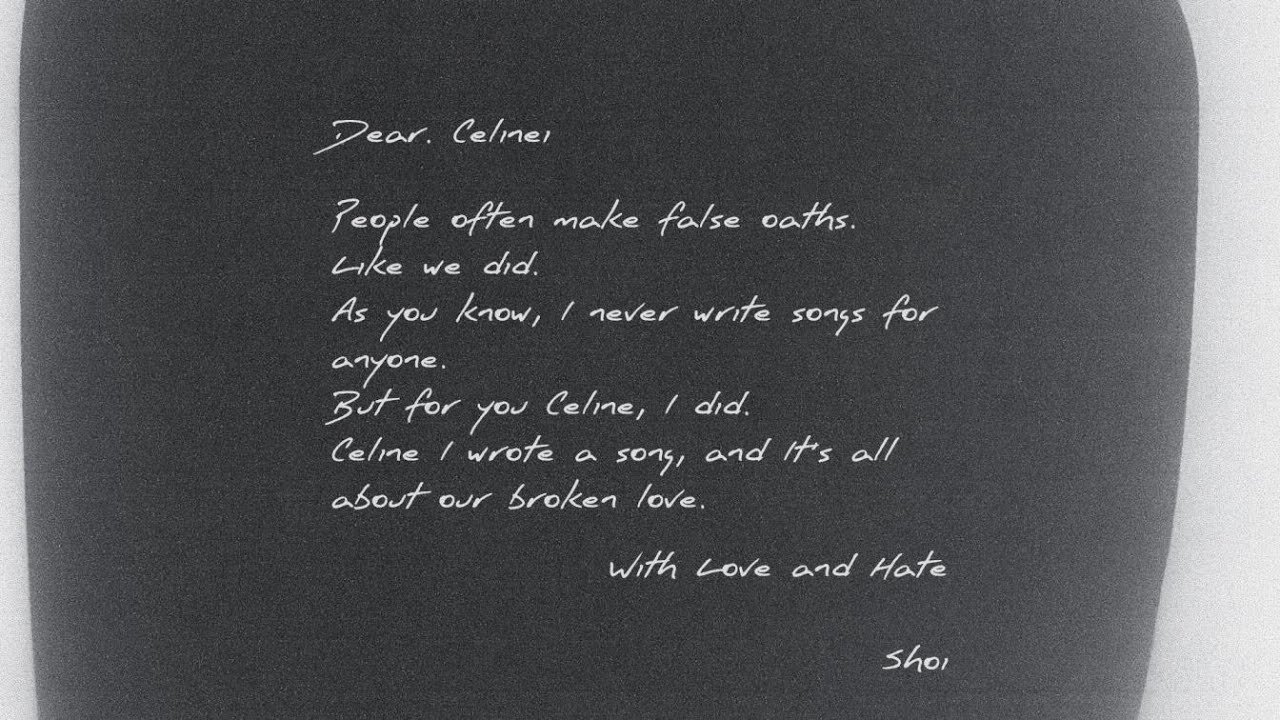 Dear. Celinei
People often make false oaths.
Like we did.
As you know, I never write songs for
anyone.
But for you Celine, I did.
Celine I wrote a song, and It's all
about our broken love.
With Love and Hate
Shoi